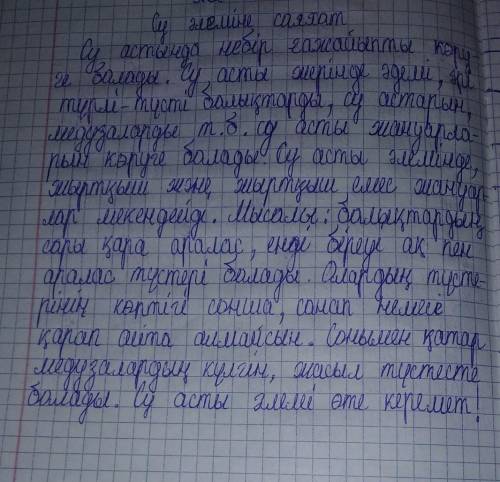 Су әлеміне саяхат
Су астында небір ғажайыпты көру-
ге болады. Су асты жерінде әдемі, әр
түрлі-түсті балықтарды, су астарын,
медузаларды т.б. су асты жануарла-
рын көруге болады Су асты әлемінде,
жыртқыш және жыртқыш емес жануар-
лар мекендейде. Мысалы: балықтардың
сары қара аралас, енді біреуі ақ пен
аралас түстері болады. Олардың түсте-
рінің көптігі сонша, санап немесе
қарап айта алмайсын. Сонымен қатар
медузалардың күлгін, жасыл түстесте
болады. Су асты әлемі өте керемет!